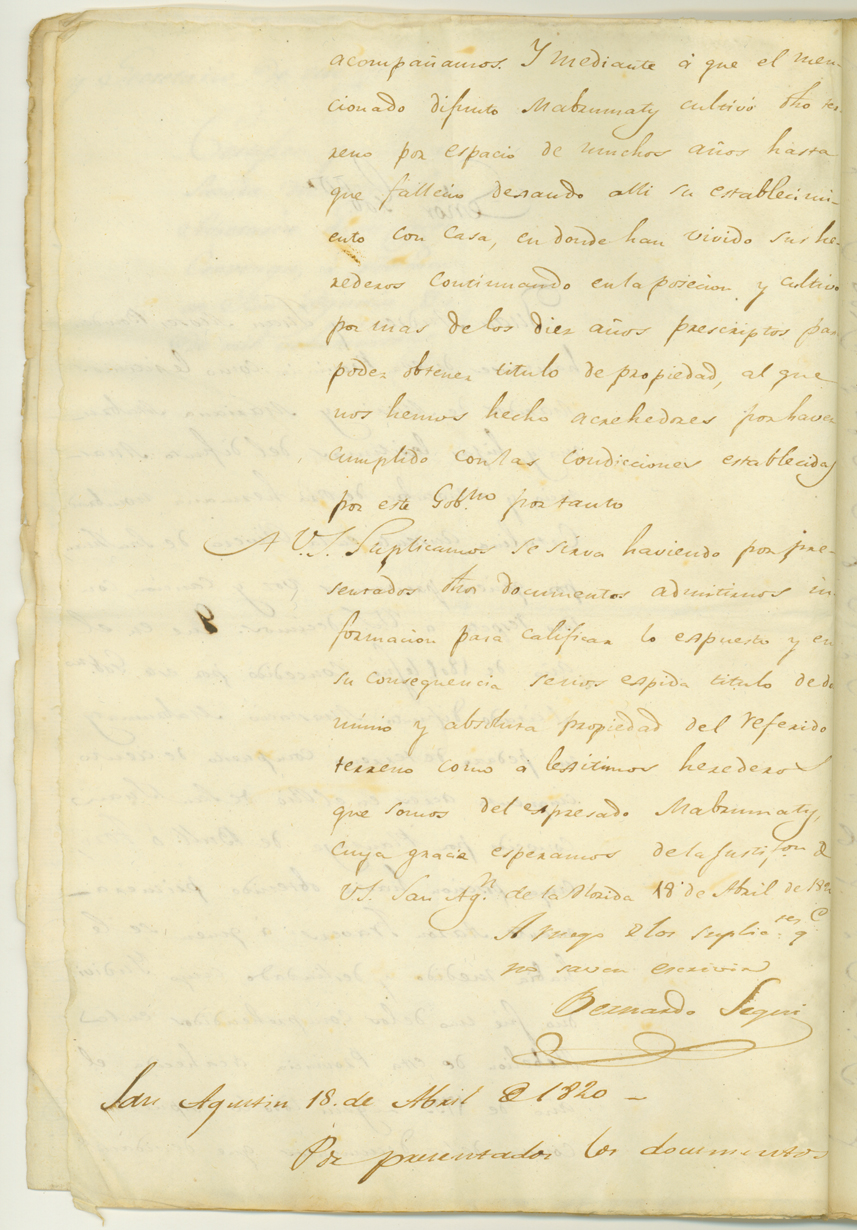 acompañamos. Y mediante á que el men-
cionado difunto Mabrumaty cultivó dho ter-
reno por espacio de muchos años hasta
que falleció dexando alli su establecimi-
ento con casa, en donde han vivido sus he-
rederos continuando en la posecion y cultivo
por mas de los diez años prescriptos para
poder obtener titulo de propiedad, al que
nos hemos hecho acrehedores por haver
cumplido con las condicciones establecidas
por este Gob.no por tanto
A V.S. Suplicamos se sirva haviendo por pre-
sentados dhos documentos admitirnos in-
formacion para calificar lo espuesto y en
su consequencia senos espida titulo de do
minio y absoluta propiedad del referido
terreno como á lexitimos herederos
que somos del expresado Mabrumaty,
cuya gracia esperamos de la Justif.on de
VS. San Ag.n de la Florida 18 de Abril de 1820
A ruego de los suplic.tes q.e
no saven escrivir
Bernardo Segui
San Agustin 18. de Abril de 1820 –
Por presentados los documentos